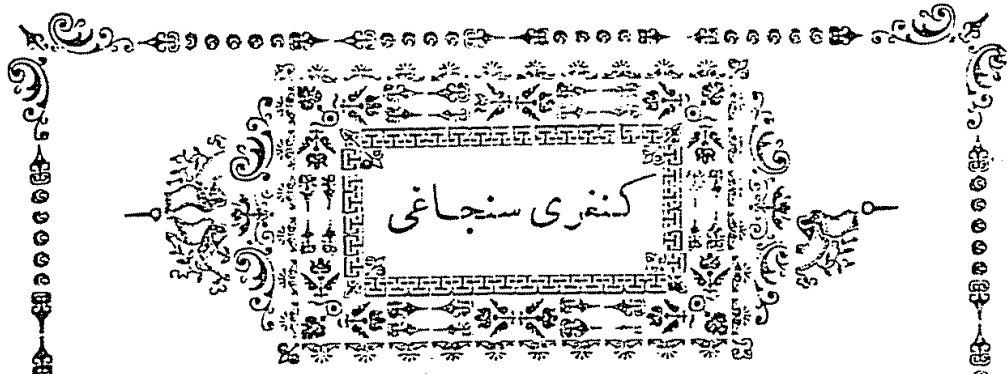 كنغرى سنجاغى